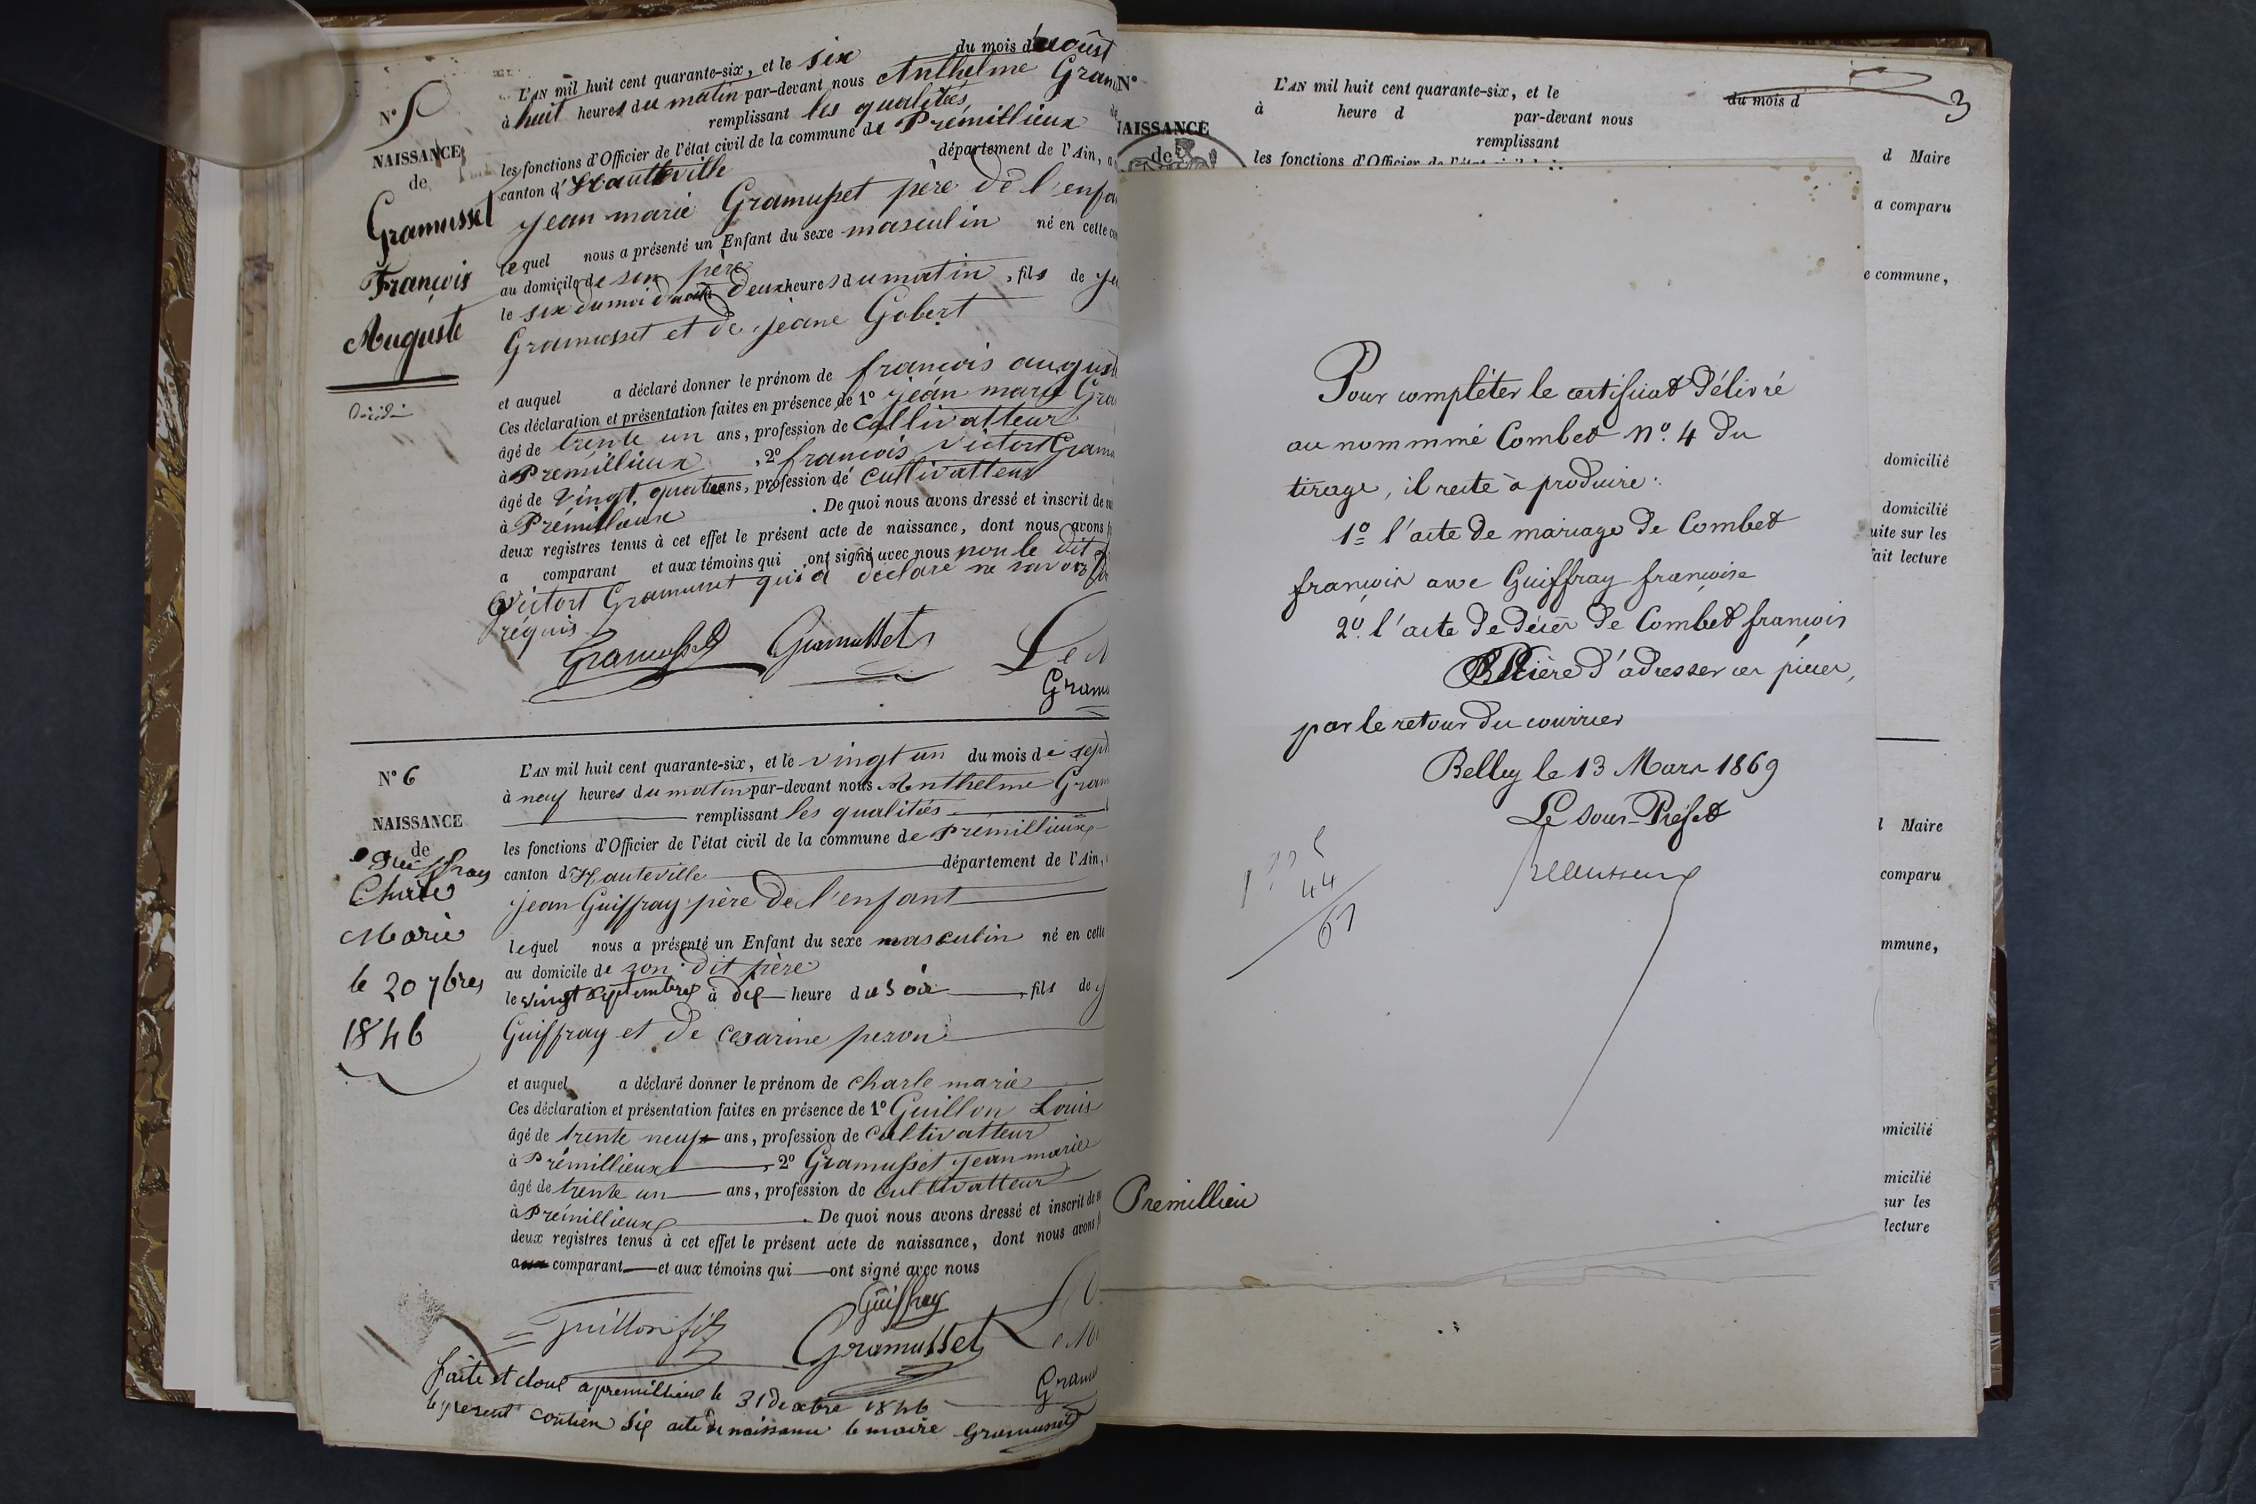 N° 5
NAISSANCE
de
Gramusset
François
Auguste
Décédé
L'AN mil huit cent quarante-six, et le six du mois d'août
à huit heures du matin par-devant nous Anthelme Gram
remplissant les qualités
les fonctions d'Officier de l'état civil de la commune de Premillieux
canton d'Hauteville département de l'Ain, a
jean marie Gramusset père de l'enfa
lequel nous a présenté un Enfant du sexe masculin né en cette co
au domicile de son père
le six du moi d'août à deux heures du matin, fils de je
Gramusset et de jeane Gobert
et auquel a déclaré donner le prénom de francois august
Ces déclaration et présentation faites en présence de 1° jean marie Gra
âgé de trente un ans, profession de cultivatteur
à Premillieux, 2° francois victort Gramu
âgé de vingt quatre ans, profession de cultivatteur
à Prémillieux. De quoi nous avons dressé et inscrit de su
deux registres tenus à cet effet le présent acte de naissance, dont nous avons f
a comparant et aux témoins qui ont signé avec nous non le dit
victort Gramusset qui a déclaré ne savoir
réquis
Gramusset Gramusset Le M
Gramu
N° 6
NAISSANCE
de
Guiffray
Charle
Marie
le 20 7bres
1846
L'AN mil huit cent quarante-six, et le vingt un du mois de sept
à neuf heures du matin par-devant nous Anthelme Gram
remplissant les qualités
les fonctions d'Officier de l'état civil de la commune de Prémillieux
canton d'Hauteville département de l'Ain,
jean Guiffray père de l'enfant
lequel nous a présenté un Enfant du sexe masculin né en cette
au domicile de son dit père
le vingt septembre à dix heure du soir, fils de j
Guiffray et de cesarine peron
et auquel a déclaré donner le prénom de charle marie
Ces déclaration et présentation faites en présence de 1° Guillon Louis
âgé de trente neuf ans, profession de cultivatteur
à Prémillieux, 2° Gramusset jean marie
âgé de trente un ans, profession de cultivatteur
à Prémillieux. De quoi nous avons dressé et inscrit de su
deux registres tenus à cet effet le présent acte de naissance, dont nous avons f
a comparant et aux témoins qui ont signé avec nous
Guiffray
Guillon fils Gramusset Le M
Gramu
faite et clous a premillieu le 31 dexbre 1846
le present contien six acte de naissance le maire Gramusset
N°
NAISSANCE
de
L'AN mil huit cent quarante-six, et le du mois d
3
à heure d par-devant nous
remplissant
les fonctions d'Officier de l'état civil
d Maire
a comparu
e commune,
domicilié
domicilié
uite sur les
fait lecture
l Maire
comparu
mmune,
omicilié
micilié
sur les
lecture
Pour compléter le certificat délivré
au nommmé Combet N° 4 du
tirage, il reste à produire:
1° l'acte de mariage de Combet
françois avec Guiffray françoise
2° l'acte de décès de Combet françois
Prière d'adresser ces pièces,
par le retour du courrier
Belley le 13 Mars 1869
Le Sous-Préfet
44
67
Premillieu